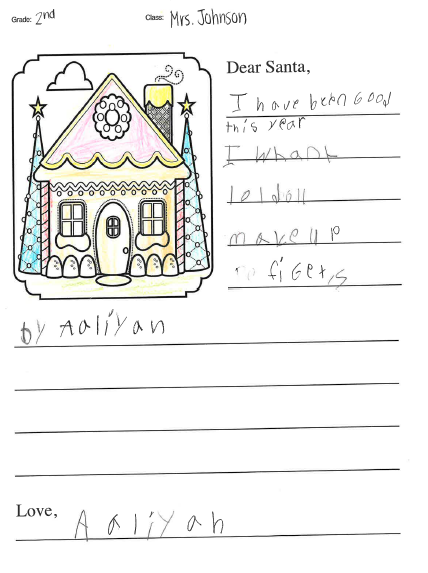 Grade: 2nd Class: Mrs. Johnson
Dear Santa,
I have been Good
this year
I whant
lol doll
make up
figets
by Aaliyah
Love, Aaliyah